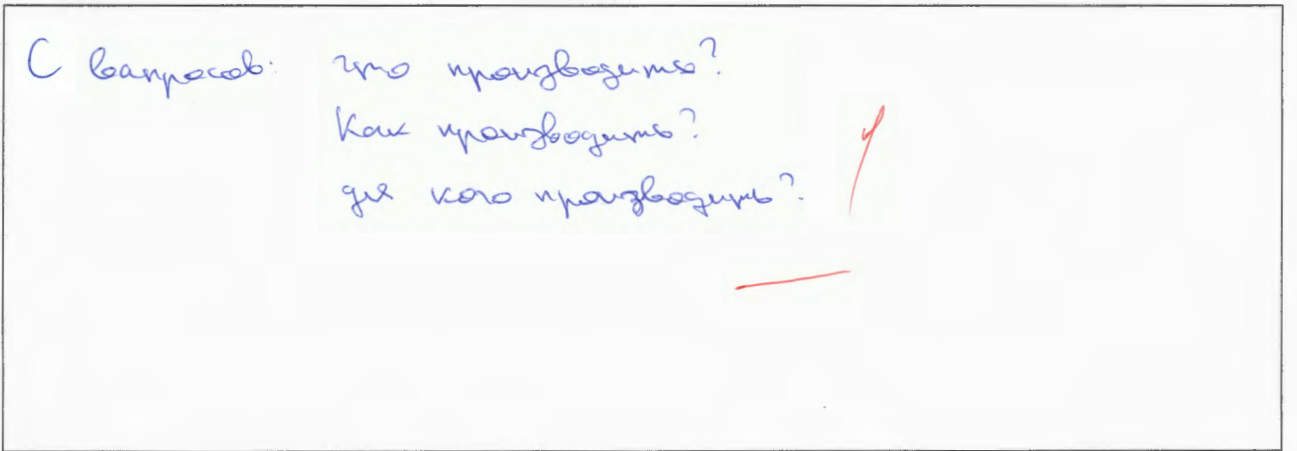 С вапросов: что производить?
Как производить?
для кого производить?